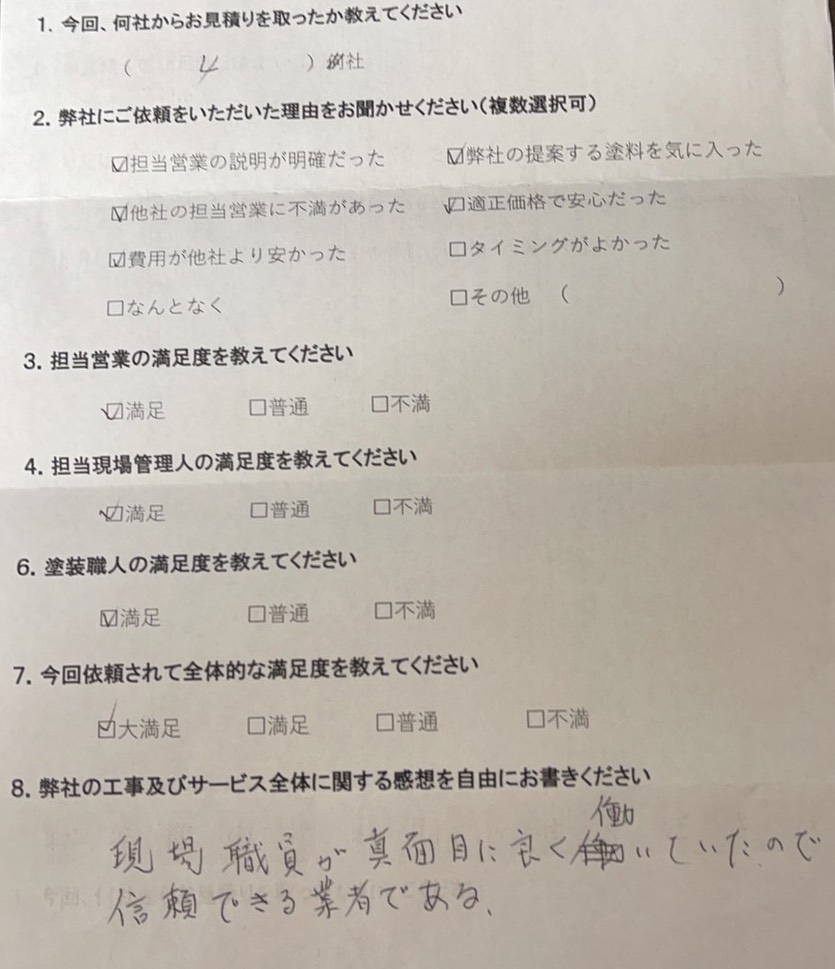 1. 今回、何社からお見積りを取ったか教えてください
( 4 ) 社
2. 弊社にご依頼をいただいた理由をお聞かせください(複数選択可)
☑担当営業の説明が明確だった ☑弊社の提案する塗料を気に入った
☑他社の担当営業に不満があった ☑適正価格で安心だった
☑費用が他社より安かった □タイミングがよかった
□なんとなく □その他 ( )
3. 担当営業の満足度を教えてください
☑満足 □普通 □不満
4. 担当現場管理人の満足度を教えてください
☑満足 □普通 □不満
6. 塗装職人の満足度を教えてください
☑満足 □普通 □不満
7. 今回依頼されて全体的な満足度を教えてください
☑大満足 □満足 □普通 □不満
8. 弊社の工事及びサービス全体に関する感想を自由にお書きください
現場職員が真面目に良く働いていたので
信頼できる業者である、